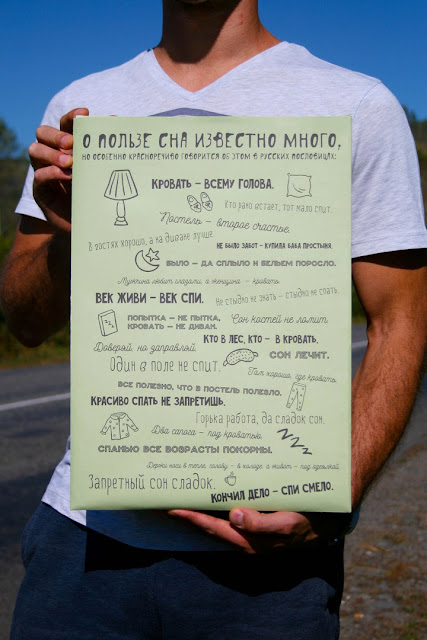 О ПОЛЬЗЕ СНА ИЗВЕСТНО МНОГО,
НО ОСОБЕННО КРАСНОРЕЧИВО ГОВОРИТСЯ ОБ ЭТОМ В РУССКИХ ПОСЛОВИЦАХ:
КРОВАТЬ – ВСЕМУ ГОЛОВА.
Кто рано встает, тот мало спит.
Постель – второе счастье.
В гостях хорошо, а на диване лучше.
НЕ БЫЛО ЗАБОТ – КУПИЛА БАБА ПРОСТЫНЯ.
БЫЛО – ДА СПЛЫЛО И БЕЛЬЕМ ПОРОСЛО.
Мужчина любит глазами, а женщина – кровать.
ВЕК ЖИВИ – ВЕК СПИ.
Не стыдно не знать – стыдно не спать.
ПОПЫТКА – НЕ ПЫТКА,
КРОВАТЬ – НЕ ДИВАН.
Сон костей не ломит.
КТО В ЛЕС, КТО – В КРОВАТЬ.
Доверяй, но заправляй.
СОН ЛЕЧИТ.
Один в поле не спит.
Там хорошо, где кровать.
ВСЕ ПОЛЕВНО, ЧТО В ПОСТЕЛЬ ПОЛЕВЛО.
КРАСИВО СПАТЬ НЕ ЗАПРЕТИШЬ.
Горька работа, да сладок сон.
Два сапога – под кроватью.
СПАНЬЮ ВСЕ ВОЗРАСТЫ ПОКОРНЫ.
Держи ноги в тепле, голову – в холоде, а живот – под одеялкой.
Запретный сон сладок.
КОНЧИЛ ДЕЛО – СПИ СМЕЛО.